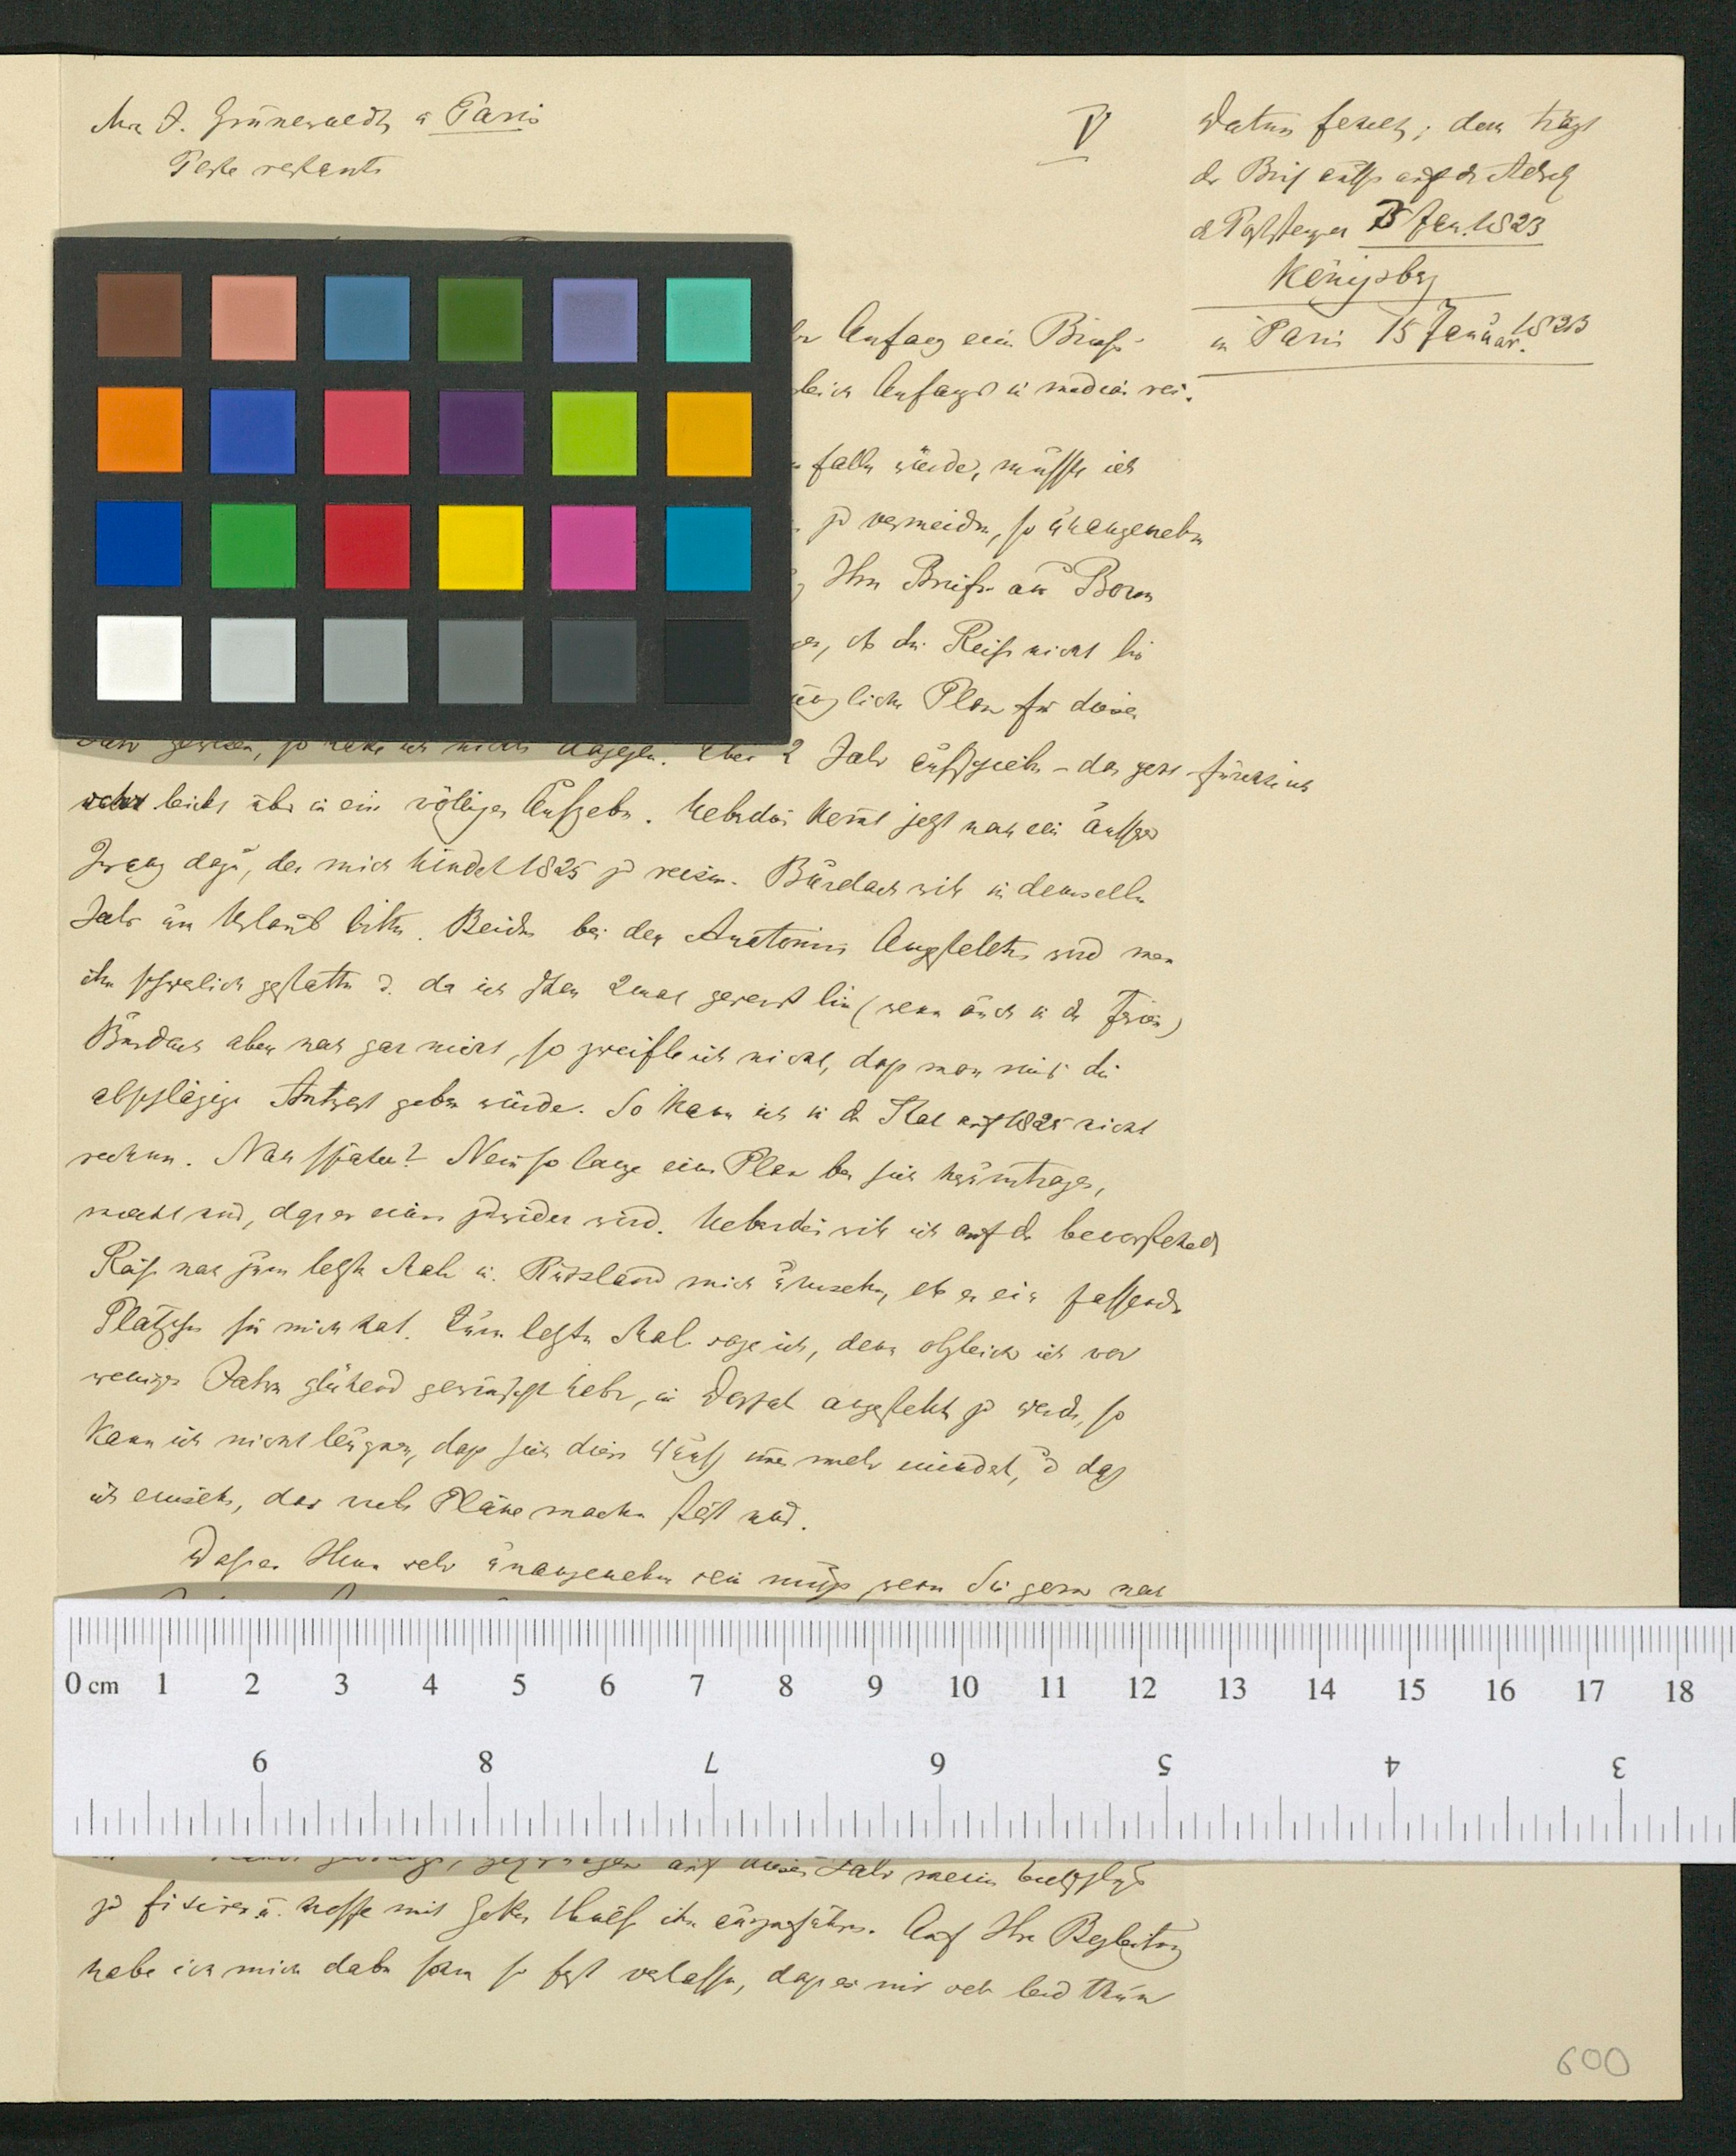 Mr J. Grünewaldt à Paris
Poste restante
V
Datum fehlt; doch trägt
der Brief außen auf der
d Poststempel 5 Jan. 1823
Königsberg
in Paris 15 Januar. 1823
Anfang ein Brief
gleich Anfangs in medias res.
fallen würde, müsste ich
zu vermeiden, so unangenehm
Ihren Briefe aus Bonn
ob die Reise nicht bis
Plan für dieses
Jahr gewesen, so hätte ich nichts dagegen. Aber 2 Jahr aufschieben - das geht fürchte ich
sehr leicht über in ein völliges Aufgeben. Ueberdies kommt jetzt noch ein äussrer
Zwang dazu, der mich hindert 1825 zu reisen. Burdach will in demselben
Jahr um Urlaub bitten. Beiden bei der Anatomie Angestellten wird man
ihn schwerlich gestatten u. da ich schon 2mal gereist bin (wenn auch in den Ferien)
Burdach aber noch gar nicht, so zweifle ich nicht, dass man mir die
abschlägige Antwort geben würde. So kann ich in der That auf 1825 nicht
rechnen. Noch später? Nein so lange einen Plan bei sich herumtragen,
macht nur, dass er einem zuwider wird. Ueberdies will ich auf der bevorstehenden
Reise noch zum letzten Male in Russland mich umsehen, ob es ein passendes
Plätzchen für mich hat. Zum letzten Mal sage ich, denn obgleich ich vor
wenigen Jahren glühend gewünscht habe, in Dorpat angestellt zu werden, so
kann ich nicht läugnen, dass sich dieser Wunsch immer mehr mindert, u dass
ich einsehe, das viele Pläne machen stört nur.
Dass es Ihnen sehr unangenehm sein muss, wenn Sie gern noch
gezwungen auf dieses Jahr meinen
zu fixiren u. hoffe mit Gottes Hülfe ihn auszuführen. Auf Ihre Begleitung
habe ich mich dabei schon so fest verlassen, dass es mir sehr leid thun
0 cm 1 2 3 4 5 6 7 8 9 10 11 12 13 14 15 16 17 18
9 8 7 6 5 4 3
600